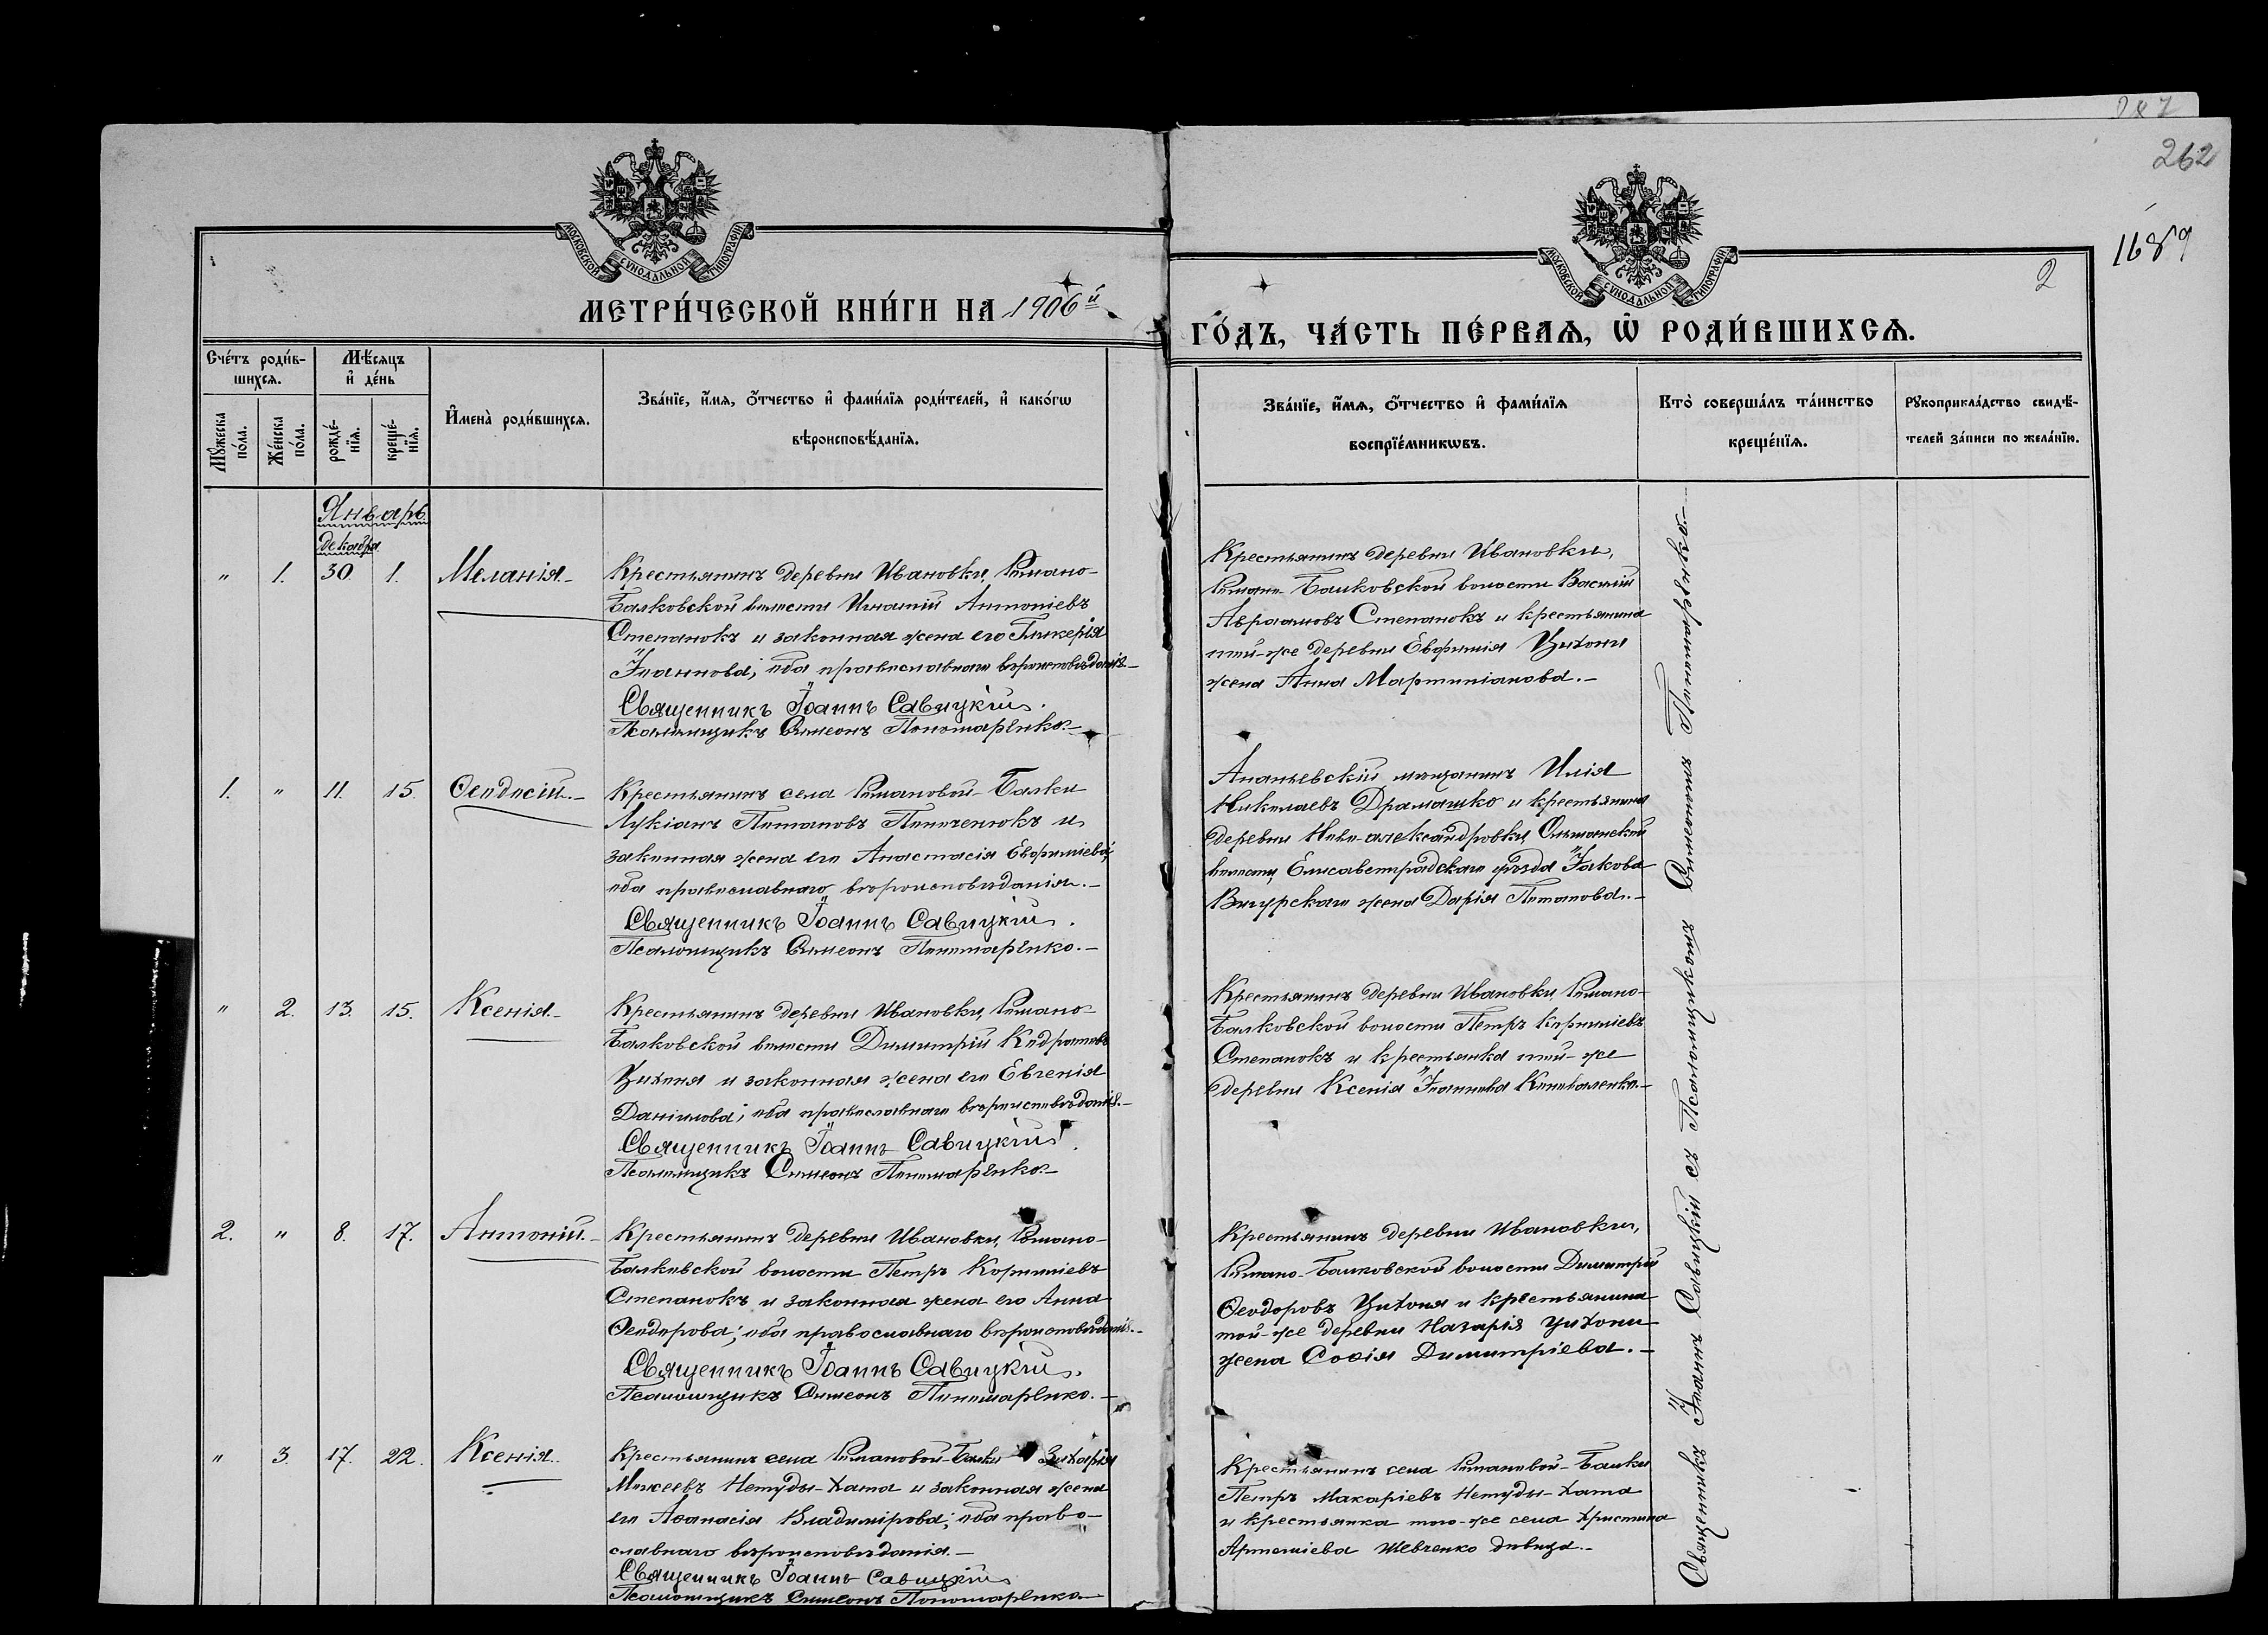 262
1689
2
МОСКОВСКОЙ СУНОДАЛЬНОЙ ТИПОГРАФІИ
МОСКОВСКОЙ СУНОДАЛЬНОЙ ТИПОГРАФІИ
МЕТРИ́ЧЕСКОЙ КНИ́ГИ НА 1906й
ГО́ДЪ, ЧА́СТЬ ПЕ́РВАѦ, Ѡ҆ РОДИ́ВШИХСѦ.
Сче́тъ роди́в-
шихсѧ.
Мѣ́сѧцъ
и҆ де́нь
Мꙋжеска
по́ла.
Же́нска
по́ла.
рожде́-
нїѧ.
креще́-
нїѧ.
И҆мена̀ роди́вшихсѧ.
Зва́нїе, и҆́мѧ, ѻ҆́тчество и҆ фами́лїѧ роди́телей, и҆ како́гѡ
вѣроисповѣ́данїѧ.
Зва́нїе, и҆́мѧ, ѻ҆́тчество и҆ фами́лїѧ
воспрїе́мникѡвъ.
Кто̀ соверша́лъ та́инство
креще́нїѧ.
Рꙋкоприкла́дство свидѣ́-
телей за́писи по жела́нїю.
Январь
декабря
" 1. 30 1. Меланія.-
Крестьянинъ деревни Ивановки, Романо-
Балковской волости Игнатій Антоніевъ
Степанокъ и законная жена его Гликерія
Іоаннова; оба православнаго вѣроисповѣданія.-
Священникъ Іоаннъ Савицкій.
Псаломщикъ Симеонъ Пономаренко.-
Крестьянинъ деревни Ивановки,
Романо-Балковской волости Василій
Авраамовъ Степанокъ и крестьянина
той-же деревни Евфимія Цихони
жена Анна Мартиніанова.-
1. " 11. 15. Ѳеодосій.-
Крестьянинъ села Романовой-Балки
Лукіанъ Потаповъ и
законная жена его Анастасія Евфиміева;
оба православнаго вѣроисповѣданія.-
Священникъ Іоаннъ Савицкій.
Псаломщикъ Симеонъ Пономаренко.-
Ананьевскій мѣщанинъ Илія
Николаевъ Драмашко и крестьянина
деревни Ново-александровки, Ольшанской
волости, Елисаветградскаго уѣзда Іакова
жена Дарія Потапова.-
" 2. 13. 15. Ксенія.-
Крестьянинъ деревни Ивановки, Романо-
Балковской волости Димитрій Кодратовъ
Цихоня и законная жена его Евгенія
Даніилова; оба православнаго вѣроисповѣданія.-
Священникъ Іоаннъ Савицкій.
Псаломщикъ Симеонъ Пономаренко.-
Крестьянинъ деревни Ивановки, Романо-
Балковской волости Петръ Корниліевъ
Степанокъ и крестьянка той-же
деревни Ксенія Іоаннова Коноваленко.-
2. " 8. 17. Антоній.-
Крестьянинъ деревни Ивановки, Романо-
Балковской волости Петръ Корниліевъ
Степанокъ и законная жена его Анна
Ѳеодорова; оба православнаго вѣроисповѣданія.-
Священникъ Іоаннъ Савицкій.
Псаломщикъ Симеонъ Пономаренко.-
Крестьянинъ деревни Ивановки,
Романо-Балковской волости Димитрій
Ѳеодоровъ Цихоня и крестьянина
той-же деревни Назарія Цихони
жена Софія Димитріева.-
" 3. 17. 22. Ксенія.
Крестьянинъ села Романовой-Балки Захарія
Моисеевъ Нетуды-Хата и законная жена
его Аѳанасія Владимірова; оба право-
славнаго вѣроисповѣданія.-
Священникъ Іоаннъ Савицкій
Псаломщикъ Симеонъ Пономаренко
Крестьянинъ села Романовой-Балки
Петръ Макаріевъ Нетуды-Хата
и крестьянка того-же села Христина
Артеміева Шевченко дѣвица.-
Священникъ Іоаннъ Савицкій съ Псаломщикомъ Симеономъ Пономаренко.-